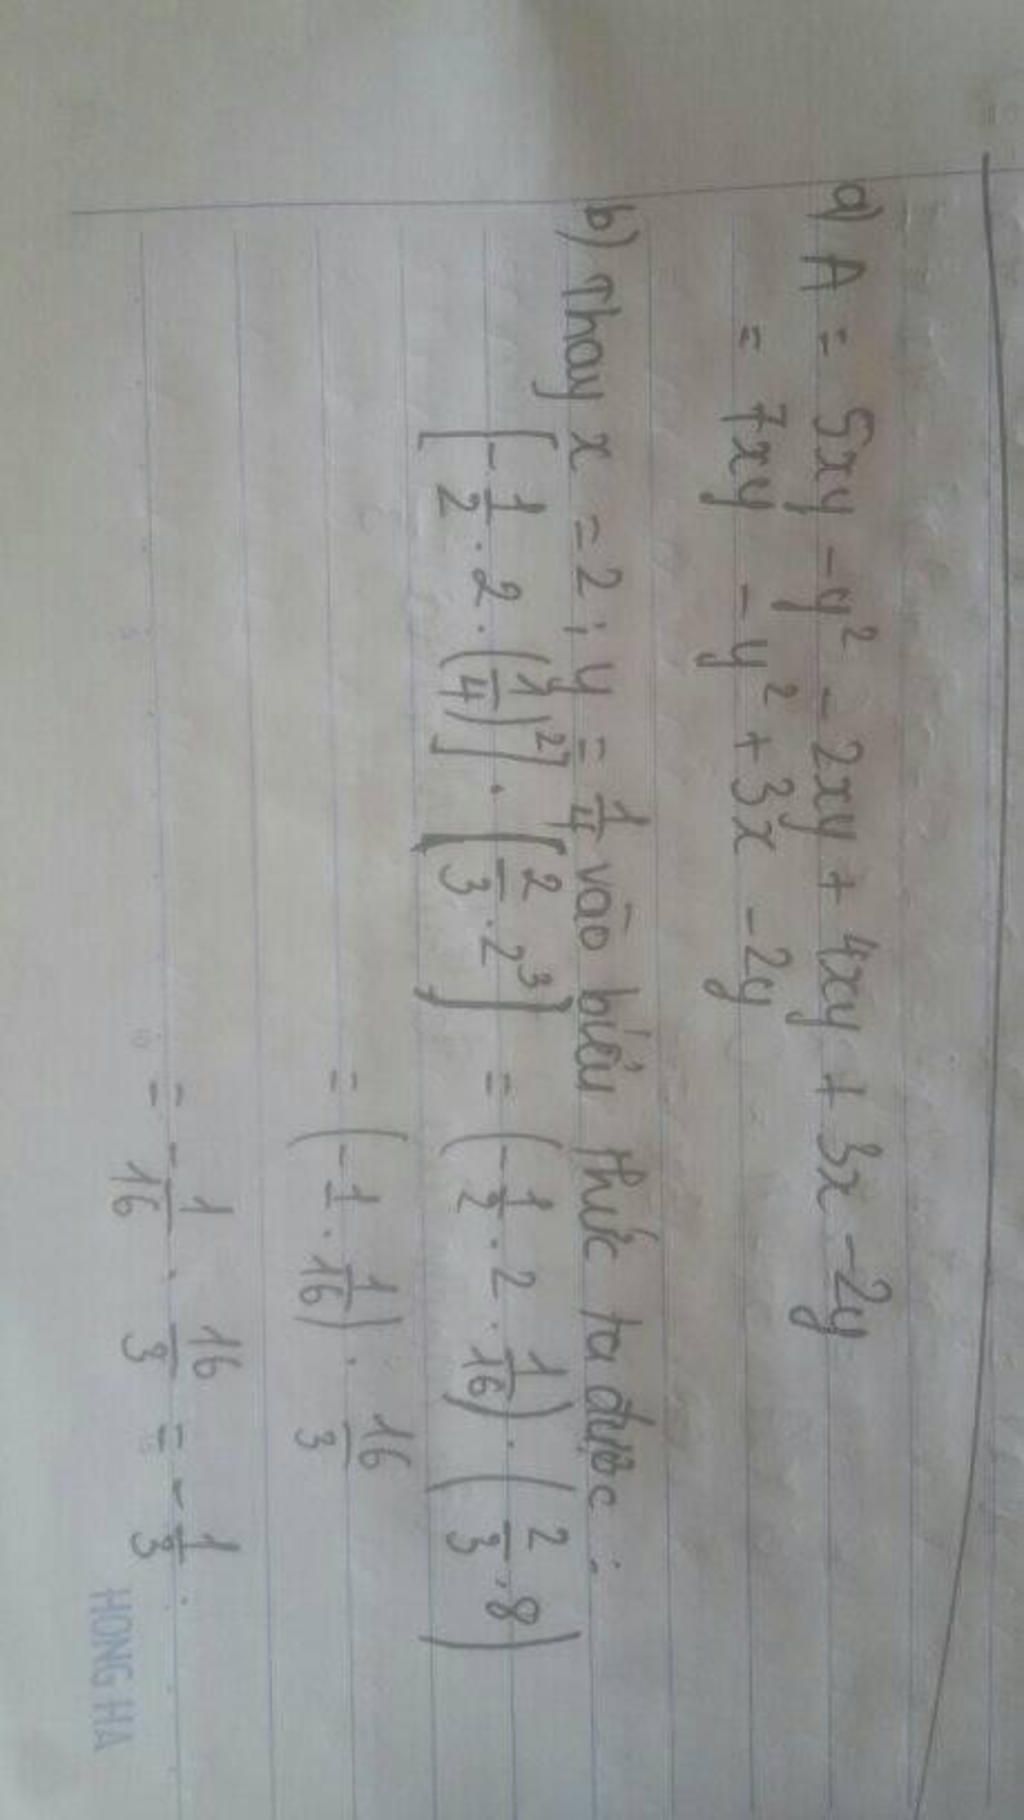 a) A = 5xy - y² - 2xy + 4xy + 3x - 2y
= 7xy - y² + 3x - 2y
b) Thay x = 2 ; y = 1/4 vào biểu thức ta được :
[-1/2 . 2 . (1/4)²] . [2/3 . 2³] = (-1/2 . 2 . 1/16) . (2/3 . 8)
= (-1 . 1/16) . 16/3
= -1/16 . 16/3 = -1/3 .
HONG HA